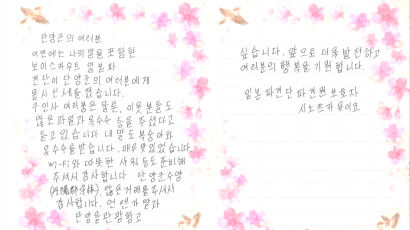 단양군의 여러분
이번에는 나의 딸을 포함한
보이스카우트 일본파
견단이 단양군의 여러분에게
몹시 신세를 졌습니다.
구인사 여러분은 물론, 이웃 분들도
많은 과일과 옥수수 등을 주셨다고
듣고 있습니다. 내 딸도 복숭아와
옥수수를 받습니다. 매우 맛있었습니다
Wi-Fi와 따뜻한 샤워 등도 준비해
주셔서 감사합니다. 단양군수님
많은 거래를 주셔서
감사합니다. 언젠가 딸과
단양을 관광하고
싶습니다. 앞으로 더욱 발전하고
여러분의 행복을 기원합니다.
일본 파견단 파견원 보호자
시노즈카 유이요